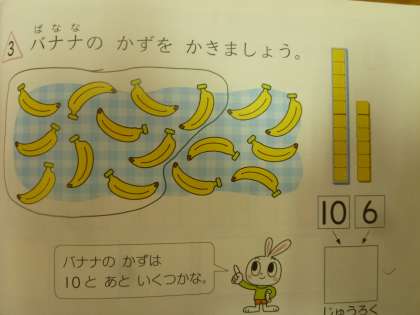 ばなな
3 バナナの かずを かきましょう。
10 6
バナナの かずは
10と あと いくつかな。
じゅうろく